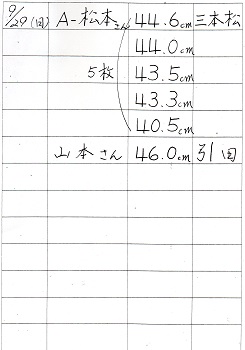 9/29(日) A-松本さん 44.6cm 三本松
44.0cm
5枚 43.5cm
43.3cm
40.5cm
山本さん 46.0cm 引田